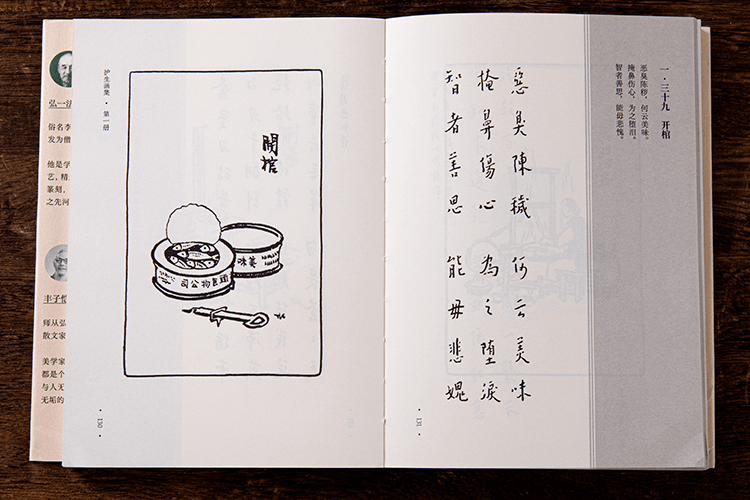 弘一法
俗名李
发为僧
他是学
艺，精
篆刻，
之先河
丰子恺
师从弘
散文家
美学家
都是个
与人无
无垢的
护生画集 · 第一册
開棺
美味
物公司
· 130 ·
一 · 三十九 开棺
恶臭陈秽，何云美味。
掩鼻伤心，为之堕泪。
智者善思，能毋悲愧。
惡臭陳穢 何云美味
掩鼻傷心 為之堕淚
智者善思 能毋悲媿
· 131 ·